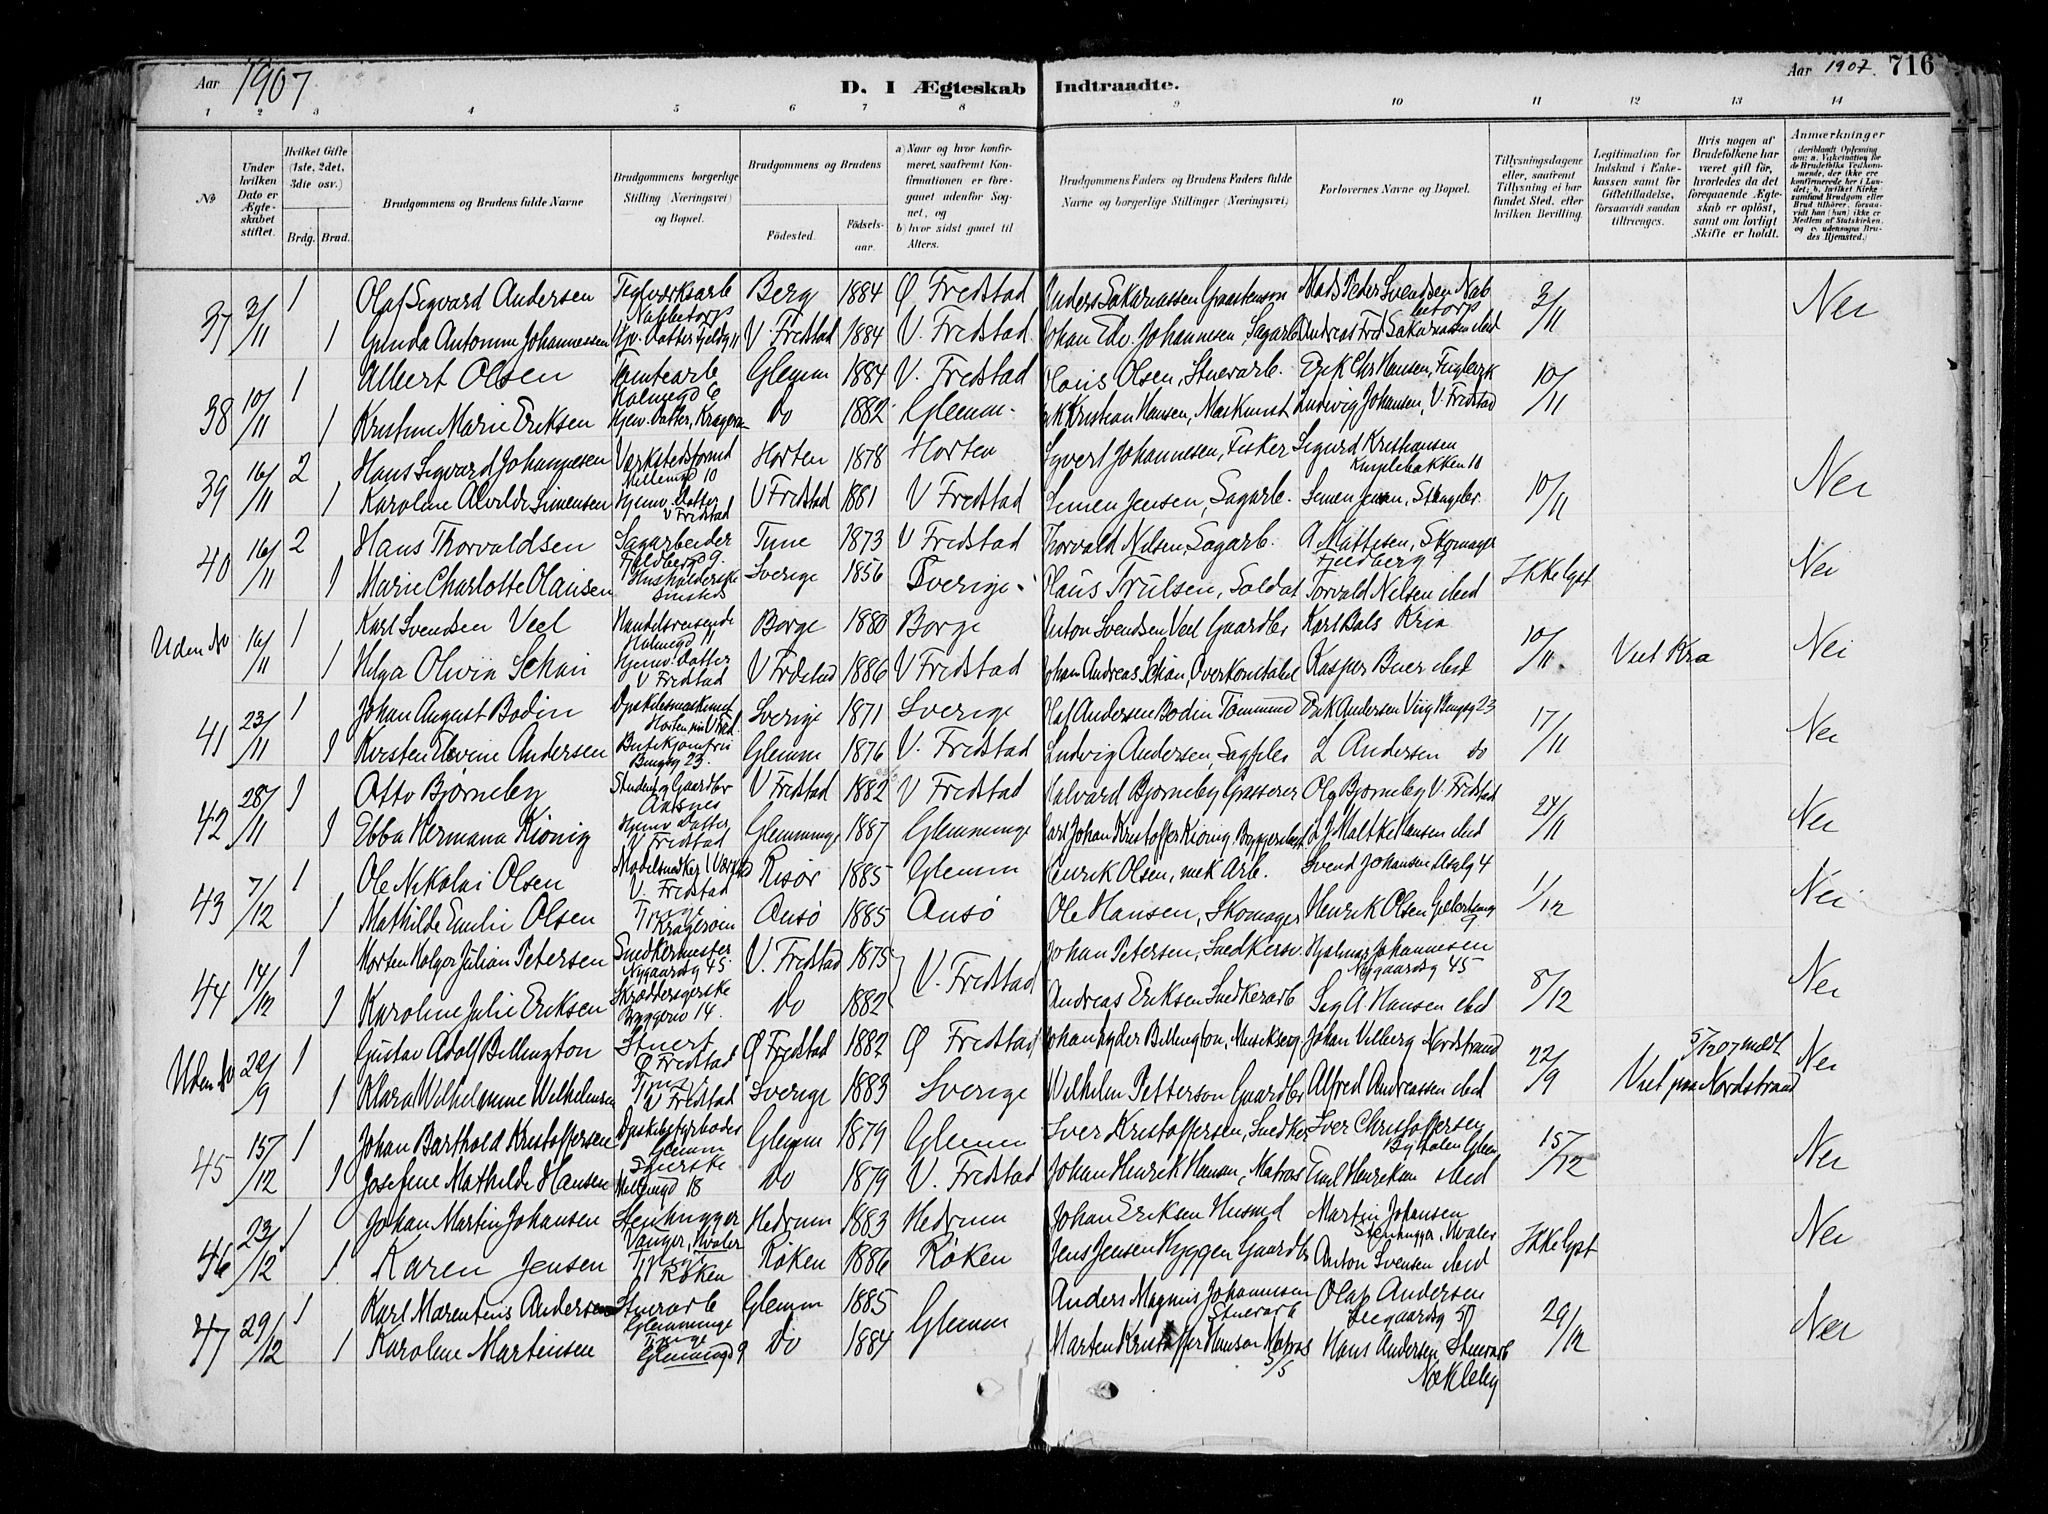 Aar 1907
D. I Ægteskab Indtraadte.
Aar 1907. 716
1 2 3 4 5 6 7 8 9 10 11 12 13 14
No
Under hvilken Dato er Ægteskabet stiftet.
Hvilket Gifte (1ste, 2det, 3die osv.)
Brdg. Brud.
Brudgommens og Brudens fulde Navne
Brudgommens borgerlige Stilling (Næringsvei) og Bopæl.
Brudgommens og Brudens
Fødested. Fødselsaar.
a) Naar og hvor konfirmeret, saafremt Konfirmationen er foregaaet udenfor Sognet, og
b) hvor sidst gaaet til Alters.
Brudgommens Faders og Brudens Faders fulde Navne og borgerlige Stillinger (Næringsvei)
Forlovernes Navne og Bopæl.
Tillysningsdagene eller, saafremt Tillysning ei har fundet Sted, efter hvilken Bevilling.
Legitimation for Indskud i Enkekassen samt for Giftetilladelse, forsaavidt saadan tiltrænges.
Hvis nogen af Brudefolkene har været gift før, hvorledes da det foregaaende Ægteskab er opløst, samt om lovligt Skifte er holdt.
Anmærkninger (deriblandt Oplysning om: a. Vaksination for de Brudefolks Vedkommende, der ikke ere konfirmerede her i Landet; b. hvilket Kirkesamfund Brudgom eller Brud tilhører, forsaavidt han (hun) ikke er Medlem af Statskirken, og c. udensogns Brudes Hjemsted.)
37 3/11 1 Olaf Sigvard Andersen Teglværksarb Nabbetorp Berg 1884 Ø Fredstad Anders Sakariassen Mads Peder Svendsen Nabbetorp 3/11 Nei
1 Gunda Antonine Johannessen V. Fredstad 1884 V. Fredstad Johan Edv. Johannesen, Sagarb Andreas Fred Sakariassen Med
38 10/11 1 Albert Olsen Tomtearb Holmegd 6 Glemm 1884 V. Fredstad Olaus Olsen, Stuevarb. Erik Chr Hansen, Teglverk 10/11
1 Kristine Marie Eriksen Hjemv. Datter, Krageroen Do 1882 Glemm. Erik Kristian Hansen, Maskinist Ludvig Johansen, V. Fredstad
39 16/11 2 Hans Sigvard Johannesen Værkstedsformd Millemgd 10 Horten 1878 Horten Syvert Johannesen, Fisker Sigurd Kristiansen Kniplebakken 10 10/11 Nei
1 Karoline Alvilde Simensen Hjemv. Datter V Fredstad V Fredstad 1881 V Fredstad Simen Jensen, Sagarb. Simen Jensen,
40 16/11 2 Hans Thorvaldsen Sagarbeider Fjeldberg 9. Tune 1873 V Fredstad Thorvald Nilsen, Sagarb. A Mathisen, Skomager Fjeldberg 9 Ikke lyst Nei
1 Marie Charlotte Olausen Husholderske Sverige 1856 Sverige Olaus Trulsen, Soldat Torvald Nilsen Med
Uden No 16/11 1 Karl Svendsen Veel Handelsreisende Holmegd 11 Borge 1880 Borge Anton Svendsen Veel Gaardbr Karl Kria 10/11 Nei
1 Helga Olivia Schøn Hjemv. Datter V Fredstad V Fredstad 1886 V Fredstad Johan Andreas Schøn, Overkonstabel Kasper Buer Med Viet Kra
41 23/11 1 Johan August Bodin Sverige 1871 Sverige Olaf Andersen Bodin Tømmermd Erik Andersen 23 17/11 Nei
1 Kirsten Elevine Andersen Butikjomfru 23. Glemm 1876 V. Fredstad Ludvig Andersen, Sagfiler L Andersen do
42 28/11 1 Otto Bjørneby Student og Gaardbr V Fredstad 1882 V Fredstad Halvard Bjørneby Grosserer Ole Bjørneby V. Fredstad 24/11 Nei
1 Ebba Hermana Kiønig Hjemv Datter V Fredstad Glemminge 1887 Glemminge Karl Johan Kristoffer Kiønig, Byggmester Moltke Hansen Med
43 7/12 1 Ole Nikolai Olsen Modelsnedker V. Fredstad Risør 1885 Glemm Henrik Olsen, mek Arb. Svend Johansen 4 1/12 Nei
1 Mathilde Emilie Olsen Krageroen Onsø 1885 Onsø Ole Hansen, Skomager Henrik Olsen 9
44 14/12 1 Morten Holger Julian Petersen Snedkermester Nygaardsg 45 V. Fredstad 1875 V. Fredstad Johan Petersen, Snedkersv. Hjalmar Johannesen Nygaardsg 45 8/12 Nei
1 Karoline Julie Eriksen Skræddersyerske 14. Do 1882 Andreas Eriksen Snedkerarb Sig A Hansen Med
Uden No 22/9 1 Gustav Adolf Billington Stuert Ø Fredstad Ø Fredstad 1882 Ø Fredstad Johan Ryder Billington, Johan Vilberg Nordstrand 22/9 5/12 07 meldt Nei
1 Klara Wilhelmine Wilhelmsen V Fredstad Sverige 1883 Sverige Wilhelm Petterson Gaardbr Alfred Andreassen Med Viet paa Nordstrand
45 15/12 1 Johan Barthold Kristoffersen Glemm Glemm 1879 Glemm Iver Kristoffersen, Snedker Iver Christoffersen Glem 15/12 Nei
1 Josefine Mathilde Hansen Millemgd 18 Do 1879 V. Fredstad Johan Henrik Hansen, Matros Emil Henriksen Med
46 23/12 1 Johan Martin Johansen Stenhugger Vauger, Hvaler Hedrum 1883 Hedrum Johan Eriksen Husmd Martin Johansen Stenhugger, Hvaler Ikke lyst Nei
1 Karen Jensen Røken Røken 1886 Røken Jens Jensen Hyggen Gaardbr Anton Svensen Med
47 29/12 1 Karl Marentius Andersen Stuerarb Glemminge Glemm 1885 Glemm Anders Magnus Johannesen Stuerarb Olaf Andersen 50 29/12 Nei
1 Karoline Martinsen Glemmingd 9 Do 1884 Marten Kristoffer Hanson Matros 5/5 Hans Andersen, Stuerarb Nokleby